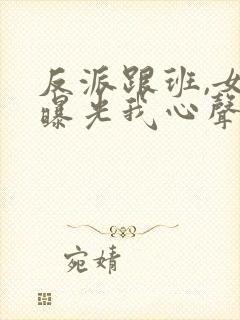 反派跟班,女
曝光我心聲
宛婧